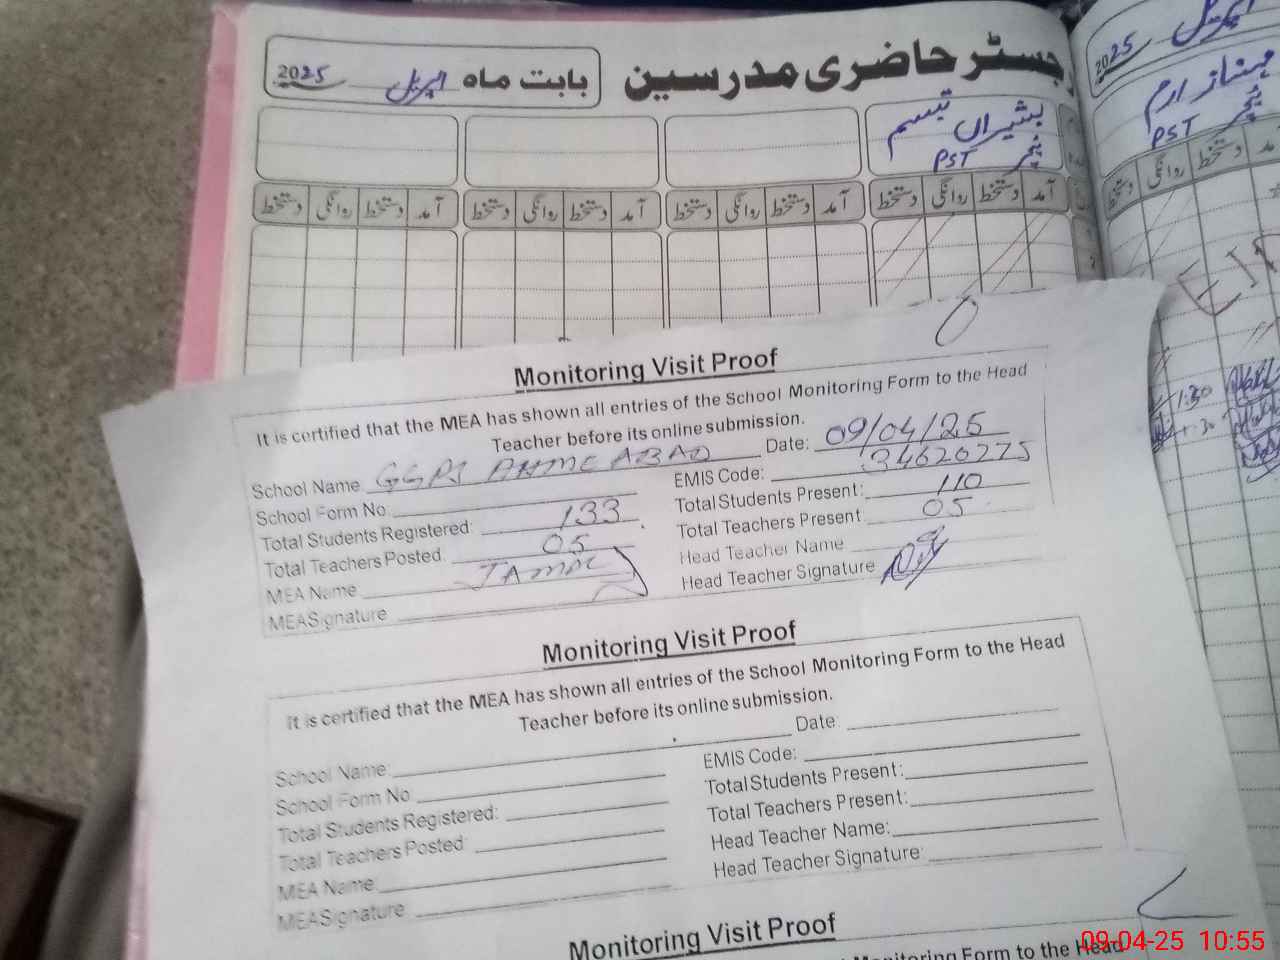 رجسٹر حاضری مدرسین
بابت ماہ اپریل 2025
2025 اپریل
بشیراں تبسم
ٹیچر PST
مہناز ارم
ٹیچر PST
آمد دستخط روانگی دستخط آمد دستخط روانگی دستخط آمد دستخط روانگی دستخط آمد دستخط روانگی دستخط
دستخط روانگی دستخط
1:30
1:30
Monitoring Visit Proof
It is certified that the MEA has shown all entries of the School Monitoring Form to the Head
Teacher before its online submission.
Date: 09/04/25
School Name GGPS AHMEABAD
EMIS Code: 34620275
School Form No:
Total Students Present: 110
Total Students Registered: 133
Total Teachers Present 05
Total Teachers Posted. 05
Head Teacher Name
MEA Name JAMAL
Head Teacher Signature
MEASignature
Monitoring Visit Proof
It is certified that the MEA has shown all entries of the School Monitoring Form to the Head
Teacher before its online submission.
Date
School Name:
EMIS Code:
School Form No
Total Students Present:
Total Students Registered:
Total Teachers Present:
Total Teachers Posted:
Head Teacher Name:
MEA Name:
Head Teacher Signature:
MEASignature
Monitoring Visit Proof
Monitoring Form to the Head
09-04-25 10:55